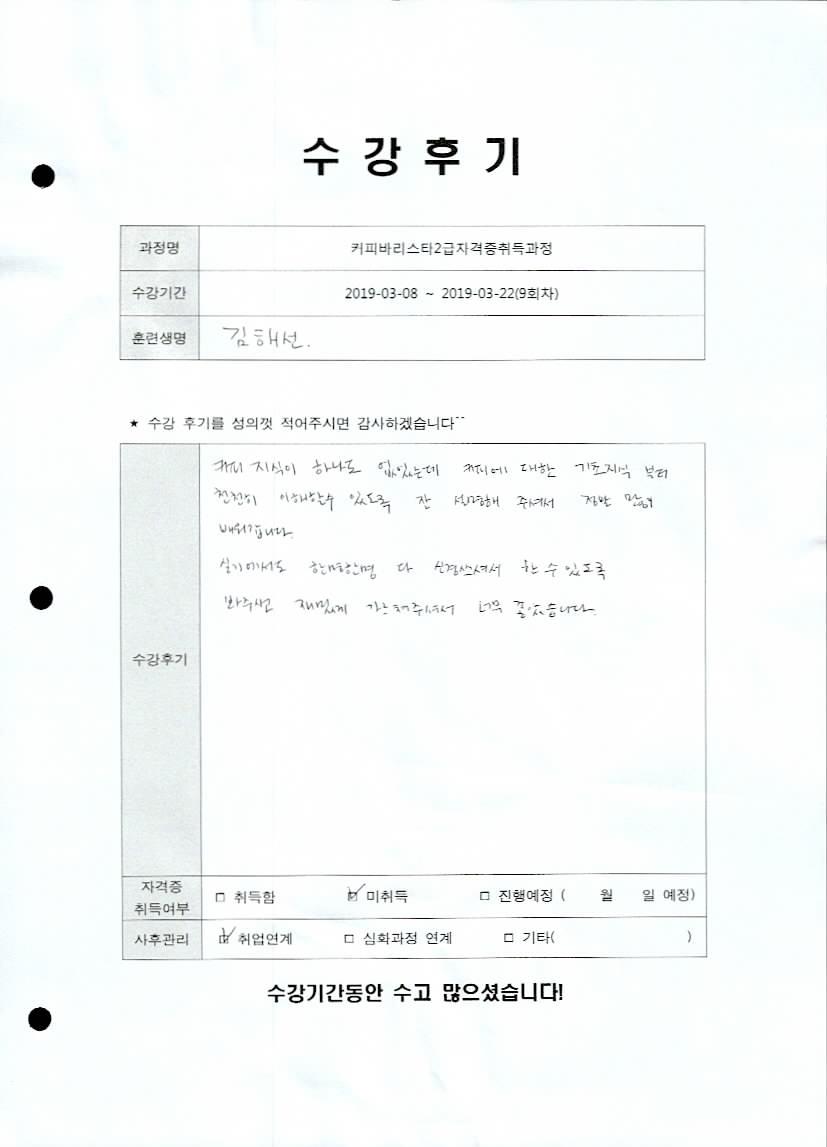 수강후기
과정명 커피바리스타2급자격증취득과정
수강기간 2019-03-08 ~ 2019-03-22(9회차)
훈련생명 김해선.
★ 수강 후기를 성의껏 적어주시면 감사하겠습니다^^
커피 지식이 하나도 없었는데 커피에 대한 기초지식 부터
천천히 이해할수 있도록 잘 설명해 주셔서 정말 많이
배워갑니다.
수강후기
실기에서도 한명한명 다 신경써셔서 할 수 있도록
봐주시고 재밌게 가르쳐주셔서 너무 좋았습니다.
자격증 취득여부 □ 취득함 ☑ 미취득 □ 진행예정 ( 월 일 예정)
사후관리 ☑ 취업연계 □ 심화과정 연계 □ 기타( )
수강기간동안 수고 많으셨습니다!